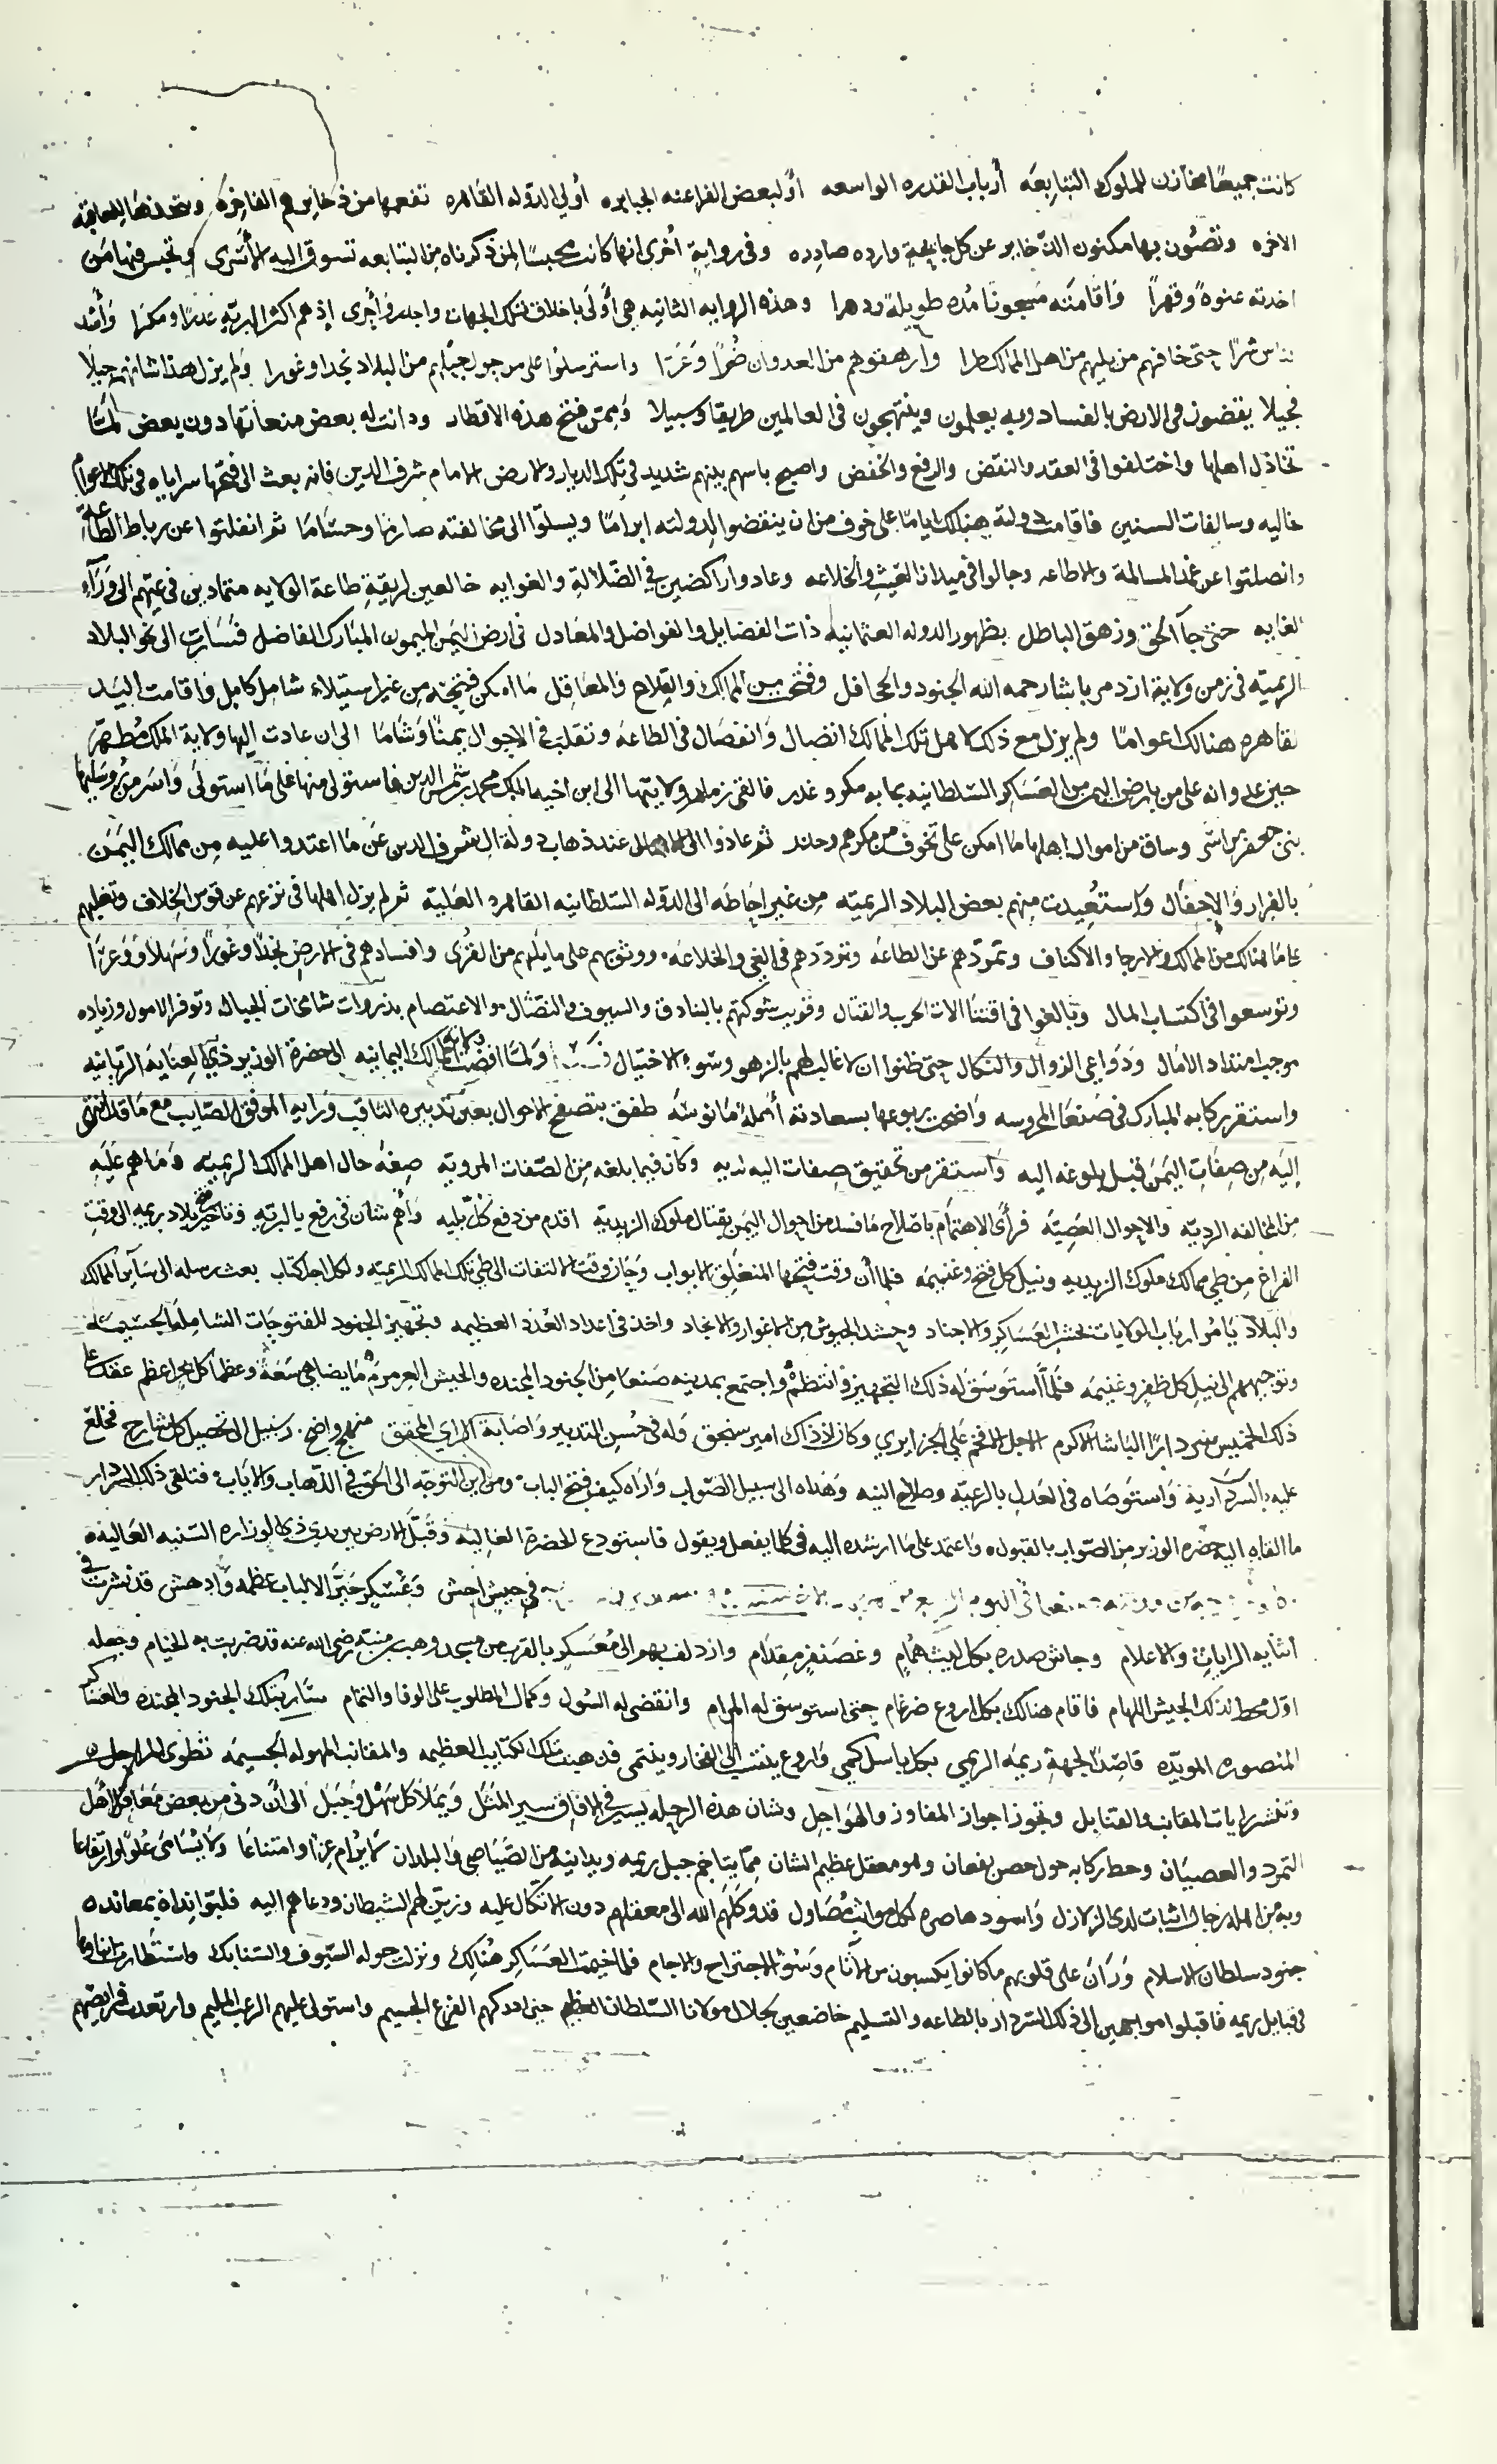 كانت جميعها مخازن للملوك التبابعه أرباب القدره الواسعه أو لبعض الفراعنه الجبابره أولي الدوله القاهره تفعمها من ذخايرهم الفاخره
الاخره وتصون بها مكنون الذخاير عن كل جايحة وارده صادره وفي رواية أخرى انها كانت محبسًا لمن ذكرناه من التبابعه تسوق اليه الأسرى وتحبس فيها من
اخذته عنوةً وقهراً واقامته مسجونا مده طويلة ودهرا وهذه الروايه الثانيه هي أولى باخلاق تلك الجهات واجدر وأجرى إذ هم اكثر البريه غدرًا ومكرًا وأشد
شرًا حتى خافهم من يليهم من اهل الممالك طرا وارهقوهم من العدوان ضُرًا وعَرَّا واسترسلوا على من حول جبالهم من البلاد نجدا وغورا ولم يزل هذا شانهم جيلًا
فجيلا يقضون في الارض بالفساد وبه يعلمون وينتهجون في العالمين طريقا وسبيلا وممن فتح هذه الاقطار ودانت له بعض منعاتها دون بعض لمّا
تخاذل اهلها واختلفوا في العقد والنقض والرفع والخفض واصبح باسهم بينهم شديد في تلك الديار والارض الامام شرف الدين فانه بعث الى فتحها سراياه في تلك الاعوام
خاليه وسالفات السنين فاقامت دولته هنالك اياما على خوف من ان ينقضوا لدولته ابرامًا ويسلّوا الى مخالفته صارما وحسامًا ثم انفلتوا عن رباط الطاعة
وانصلتوا عن غمد المسالمة والاطاعه وجالوا في ميدان العيث والخلاعه وعادوا راكضين في الضّلالة والغوايه خالعين لربقة طاعة الولايه متمادين في غيّهم الى وَرَآءِ
الغايه حتى جآ الحق وزهق الباطل بظهور الدوله العثمانيه ذات الفضايل والفواضل والمعَادل في ارض اليَمن الميمون المبَارك الفاضل فسَارت الى نحو البلاد
الريميّه في زمن ولاية ازدمر باشا رحمه الله الجنود والجحافل وفتحَ من الممالك والقلاع والمعَاقل مَا امكن فتحه من غير استيلاء شامل كامل وَاقامت اليَد
القاهره هنالك اعوامًا ولم يزل مع ذلك لاهل تلك الممالك اتصال وَانفصَال في الطاعَه وتقلّب في الاحوال يمنًا وشَامًا الى ان عادت إليها ولاية الملك مُطهَّر
حين عدوانه على من بارض اليمن من العسَاكر السّلطانيه بما به مكر وغدر فالقى زمام ولايتها الى ابن اخيه الملك محمد بن شمس الدين فاستولى منها على مَا استولىَ وَاسَر من
بني جعفر من اسَر وساق من اموال اهلها مَا امكن على تخوف من مكرهم وحذر ثم عادوا الى عند ذهاب دولة ال شرف الدين عَن مَا اعتدوا عليه مِن ممالك اليَمَن
بالفرار وَالاجفال وَاستُعيدت منهم بعض البلاد الريميّه مِن غير اِحَاطَه الى الدّوله السّلطانيه القاهره العَليّه ثم لم يزل اهلها في نزعهم عن قوس الخلاف وتغلبهم
على ما هنالك من الممالك والارجا والاكناف وتمرّدهم عن الطاعَه وتردّدهم في الغي والخلاعَه ووثوبهم على ما يَليهم من القرى وافسادهم في الارض نجدًا وغورًا وسَهلاً ووَعرًا
وتوسعوا في اكتساب المال وبَالغوا في اقتنا الات الحرب والقتال وقويت شوكتهم بالبنادق والسيوف والنّصَال والاعتصام بذروات شامخات الجبال وتوفر الامول وزياده
موجب امتداد الامال ودَوَاعي الزوال والنكال حتى ظنوا ان لا غالب لهم بالزهو وسوء الاختيال وَلمّا افضت ولاية الممالك اليمانيه الى حضرة الوزير ذي العِنايَة الرّبانيه
واستقر ركابه المبارك في صَنعَا المحروسه وَاضحت ربوعها بسعادته أهلة مَانوسَه طفق يتصفح الاحوال بعين تدبيره الثاقب وَرايه الموفق الصّايب مع مَا قد انتهى
إليَه مِن صِفَات اليَمنَ قبل بلوغه اليه وَاستقر من تحقيق صِفات اليه لديه وكان فيما بلغه مِن الصّفات المرويّه صِفة حال اهل الممالك الريميّه وَمَا هم عليَهِ
من المخالفه الرديّه والاحوال العَصِيّه فرأى الاهتمَام باصلاح مَا فسَد من احوال اليَمن بقتال ملوك الزيديّه اقدم من دفع كل بليّه وَأهم شان في رفع يا البريّه وَتاخير فتح بلاد ريمه الى وقت
الفراغ مِن طي ممالك ملوك الزيديه ونيل كل فتح وغنيمه فلما أن وقت فتحها المنغَلق الابواب وَحَان وقت الالتفات الى طي تلك الممالك الريميّه ولكل اجل كتاب بعث رسله الى سَاير الممالك
والبلاد يَامُر ارباب الولايات بحشر العسَاكر والاجناد وحشد الجيوش مِن الاغوار والانجاد واخذ في اعداد العُدَد العظيمه وتجهيز الجنود للفتوحَات الشاملة الجسيمَه
وتوجيههم الى نيل كل ظفر وغنيمَه فلمّا استوسَق له ذلك التجهيز وَانتظم واجتمع بمدينه صَنعَا من الجنود المجنده والجيش العرمرم مَا يضاهي سَعَة وعظما كل بحر اعظم عقد على
ذلك الخميس سردارًا الباشا الاكرم الاجل الافخم عَلي الجزايري وكان اذ ذاك امير سنجق وَله في حُسن التدبير وَاصَابة الراي المحقق منهج واضح وسَبيل الى تحصيل كل نَاجح فخلع
عليه بالسّردَارية وَاستَوصَاه في العَدل بالرعيّه وصلاح النيه وَهَداه الى سبيل الصّواب وَارَاه كيف يفتح الباب ومن اين التوجّه الى الحَق في الذّهاب والايَاب فتلقى ذلك السردار
ما القاه اليه حضره الوزير مِن الصّواب بالقبول وَاعتمد على مَا ارشده اليه في كل مَا يفعل ويقول فاستودع الحضرة العَاليه وقبَّل الارض بين يدي ذي الوزاره السّنيه العَاليه
في اليوم في جيش اجش وَعسْكر حَيَّر الالباب عظمه وَأدهش قد نشرت في
اثنايه الرايات والاعلام وجاش صدره بكل ليث همام وغضنفر مِقدَام وازدلف بهم الى مُعَسْكر بالقرب من مسجد وهب بن منبّه رضي الله عنه قد ضربت به الخيام وجعله
اول محط لذلك الجيش اللهام فاقام هنالك بكل اروع ضرغام حتى استوسق له المرام وانقضى له السول وكمال المطلوب على الوفا والتمام سَار بتلك الجنود المجنده والعسَاكر
المنصوره المويّده قاصِدًا لجهة ريمَة الريمي بكل باسل كمي وَاروع ينتسب الى الفخار وينتمى قد هبت تلك الكتايب العظيمه والمقانب المهوله الجسيمَه تطوى المراحل
وتنشر رايات المقانب والقنابل وتجوز اجواز المفاوز والهوَاجل وشان هذه الرحله يسير في الافاق سير المثَل وَيملا كل سَهْل وَجَبَل الى أن دنى مِن بعض مَعَاقل اهل
التمرد والعصيَان وحط ركابه حول حصن يفعان وهو معقل عظيم الشان ممّا يتاخم جبل ريمه ويدانيه من الصّيَاصي وَالبلدان لا يُرام عِزًا وامتناعًا ولا يُسَامَى عُلُوًا وارتفاعا
وبه من اهله رجال اثبات لدى الزلازل وَاسود هاصره لكل مواثب مُصَاول قد وكلهم الله الى معقلهم دون الاتكال عليه وزيّن لهم الشيطان ودعاهم اليه فلبّوا نداهُ بمعانده
جنود سلطان الاسلام وَرَانَ على قلوبهم ما كانوا يكسبون من الأثام وَسُوء الاجتراح والاجام فلمّا خيمت العسَاكر هُنالك ونزلت حوله السّيوف والسّنابك وَاستَطارت
في قبايل ريمه فاقبلوا مواجهين الى ذلك السّردار بالطاعه والتسليم خاضعين لجلال مولانا السّلطان العظيم حتى ادركهم الفزع الجسيم واستولى عليهم الرعب المليم وارتعدت فرايصهم